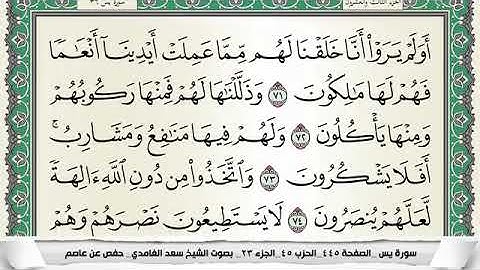 سورة يس الجزء الثالث والعشرون
أَوَلَمْ يَرَوْا۟ أَنَّا خَلَقْنَا لَهُم مِّمَّا عَمِلَتْ أَيْدِينَآ أَنْعَـٰمًا
فَهُمْ لَهَا مَـٰلِكُونَ ٧١ وَذَلَّلْنَـٰهَا لَهُمْ فَمِنْهَا رَكُوبُهُمْ
وَمِنْهَا يَأْكُلُونَ ٧٢ وَلَهُمْ فِيهَا مَنَـٰفِعُ وَمَشَارِبُ ۖ
أَفَلَا يَشْكُرُونَ ٧٣ وَٱتَّخَذُوا۟ مِن دُونِ ٱللَّهِ ءَالِهَةً
لَّعَلَّهُمْ يُنصَرُونَ ٧٤ لَا يَسْتَطِيعُونَ نَصْرَهُمْ وَهُمْ
سورة يس _ الصفحة ٤٤٥_ الحزب ٤٥_ الجزء ٢٣_ بصوت الشيخ سعد الغامدي_ حفص عن عاصم